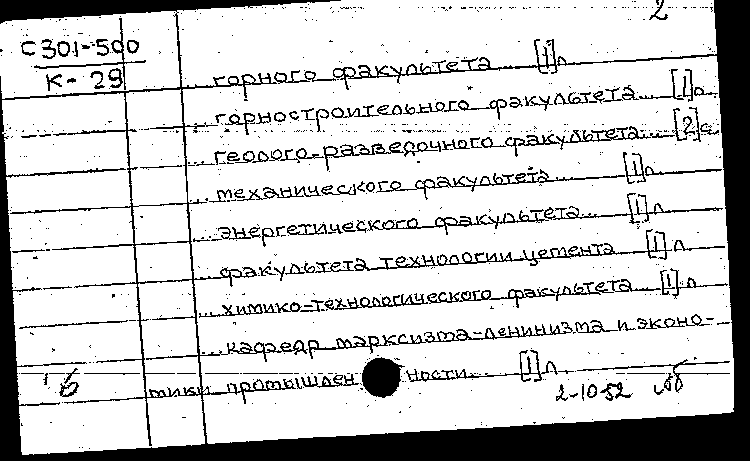 2
С 301-500
К-29
... горного факультета ... [1] л.
... горностроительного факультета ... [1] л.
... геолого-разведочного факультета ... [2] с.
... механического факультета ... [1] л.
... энергетического факультета ... [1] л.
... факультета технологии цемента [1] л.
... химико-технологического факультета ... [1] л.
... кафедр марксизма-ленинизма и эконо-
мики промышленности ... [1] л.
б
2-10-52